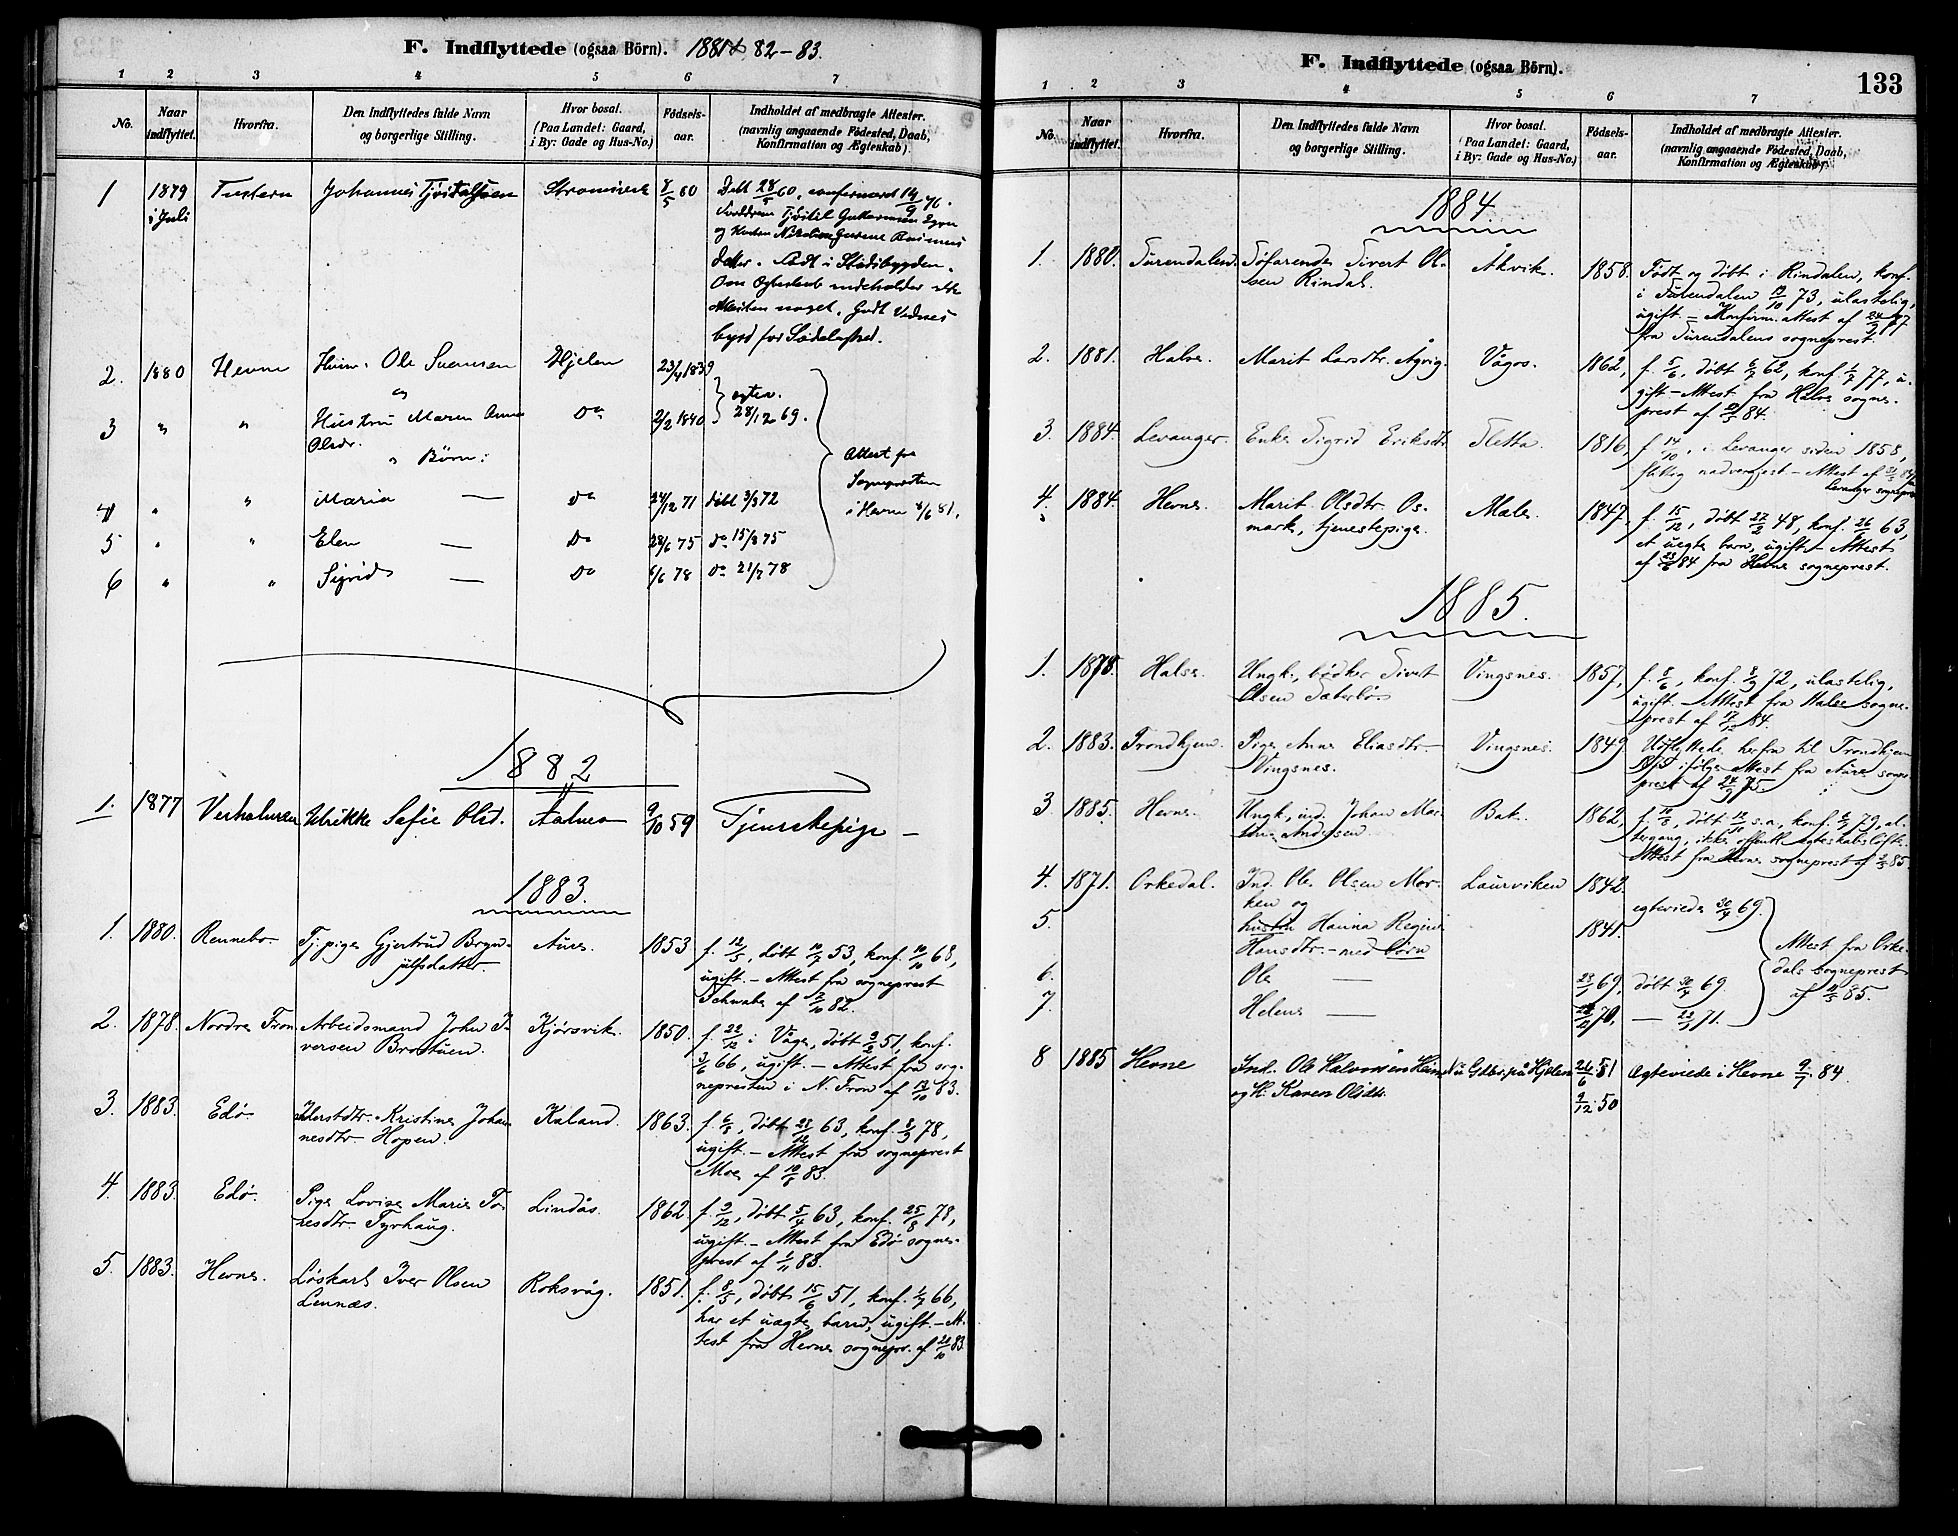 F. Indflyttede (ogsaa Börn). 1881 & 82-83.
1 2 3 4 5 6 7.
No.
Naar indflyttet.
Hvorfra.
Den Indflyttedes fulde Navn
og borgerlige Stilling.
Hvor bosat.
(Paa Landet: Gaard,
i By: Gade og Hus-No.)
Födsels-
aar.
Indholdet af medbragte Attester.
(navnlig angaaende Födested, Daab,
Konfirmation og Ægteskab)
1 1879 Tustern Johannes 8/5 60 Döbt 28/5 60, confirmeret 14/9 76.
i Juli
og Kusken
datter. Födt i Stadsbygden.
Om indeholder
noget. Godt Vidnes
byrd for
2. 1880 Hevne Ole Svensen Hjelen 23/4 1839
og
3 " " Hustru Maren Anne Do 2/2 1840 28/12 69.
Olsdr.
" Börn:
4 " " Maria — Do 24/12 71 döbt 3/3 72
5 " " Elen — Do 28/6 75 Do 15/8 75
6 " " Sigrid — Do 6/6 78 Do 21/7 78
Attest fra
Sognepresten
i Hevne 8/6 81.
1882
1. 1877 Ulrikke Sofie Olsd. 9/10 59 Tjenestepige —
1883.
1. 1880. Rennebo Tj.pige Gjertrud Bryn- Aure. 1853 f. 12/5, döbt 10/7 53, konf. 10/10 68,
julfsdatter. ugift. — Attest fra sogneprest
Schwabe af 2/10 82.
2. 1878. Nordre Fron Arbeidsmand John I- Kjørsvik. 1850. f. 22/12 i Våge, döbt 9/2 51, konf.
versen Brostuen. 3/6 66, ugift. — Attest fra sog-
nepresten i N. Fron af 12/10 83.
3. 1883. Edø. Kristine Johan- Kaland. 1863. f. 6/8, döbt 63, konf. 78,
nesdtr. Hopen. ugift. — Attest fra sogneprest
Moe af 10/8 83.
4. 1883. Edø. Pige Lovise Marie To- Lindås. 1862. f. 9/12, döbt 5/4 63, konf. 25/8 78,
resdtr. Tyrhaug. ugift. — Attest fra Edø sogne-
prest af 1/11 83.
5. 1883. Hevne. Løskarl Iver Olsen Roksvåg. 1851. f. 8/5, döbt 15/6 51, konf. 1/7 66,
Lennæs. har et uægte barn, ugift. — At-
test fra Hevne sognepr. af 21/10 83.
F. Indflyttede (ogsaa Börn).
133
1 2 3 4 5 6 7
No.
Naar indflyttet.
Hvorfra.
Den Indflyttedes fulde Navn
og borgerlige Stilling.
Hvor bosat.
(Paa Landet: Gaard,
i By: Gade og Hus-No.)
Födsels-
aar.
Indholdet af medbragte Attester.
(navnlig angaaende Födested, Daab,
Konfirmation og Ægteskab).
1884
1. 1880. Surendalen. Søfarende Sivert Ol- Åkvik. 1858. Født og døbt i Rindalen, konf.
sen Rindal. i Surendalen 73, ulastelig,
ugift. — Konfirm.attest af 24/9 77
fra Surendalens sogneprest.
2. 1881. Halse. Marit Larsdtr. Vågos. 1862, f. 5/6, döbt 6/7 62, konf. 1/7 77, u-
gift — Attest fra Halse sogne-
prest af 84.
3. 1884. Levanger. Enke Sigrid Eriksdtr. Sletta. 1816, f. 14/10, i Levanger siden 1858,
flittig nadvergjest — Attest af 84 fra
Levanger sogneprest
4. 1884. Hevne. Marit Olsdtr. Os- Male. 1847, f. 15/12, döbt 27/2 48, konf. 26/6 63,
mark, tjenestepige. et uægte barn, ugift — Attest
af 23/6 84 fra Hevne sogneprest.
1885.
1. 1878. Halse. Ungk., bødker Sivert Vingsnes. 1857, f. 8/6, konf. 8/9 72, ulastelig,
Olsen Sæterlø ugift. — Attest fra Halse sogne-
prest af 84.
2. 1883. Trondhjem. Pige Anne Eliasdtr. Vingsnes. 1849 Udflyttede herfra til Trondhjem
Vingsnes. ifølge Attest fra Aure sogne-
prest af 24/9 75.
3 1885. Hevne. Ungk., ind. Johan Mar- Bak. 1862, f. 10/8, döbt 12/10 s.a., konf. 79, al-
Andersen. tergang, ikke offentl. ægteskabsløfte.
Attest fra Hevne sogneprest af 2/5 85.
4. 1871. Orkedal. Ind. Ole Olsen Mor- Laurviken 1842.
ken og ægteviede 30/4 69.
5. hustru Hanna Regine 1841.
Hansdtr. — med børn
6. Ole — 23/1 69, döbt 30/4 69.
7. Helene — 70, — 71.
Attest fra Orke-
dals sogneprest
af 85.
8 1885 Hevne Ind. Ole Halvorsen på Hjelen 26/6 51 Ægteviede i Hevne 9/7 84.
og H. Karen Olsdtr. 9/12 50